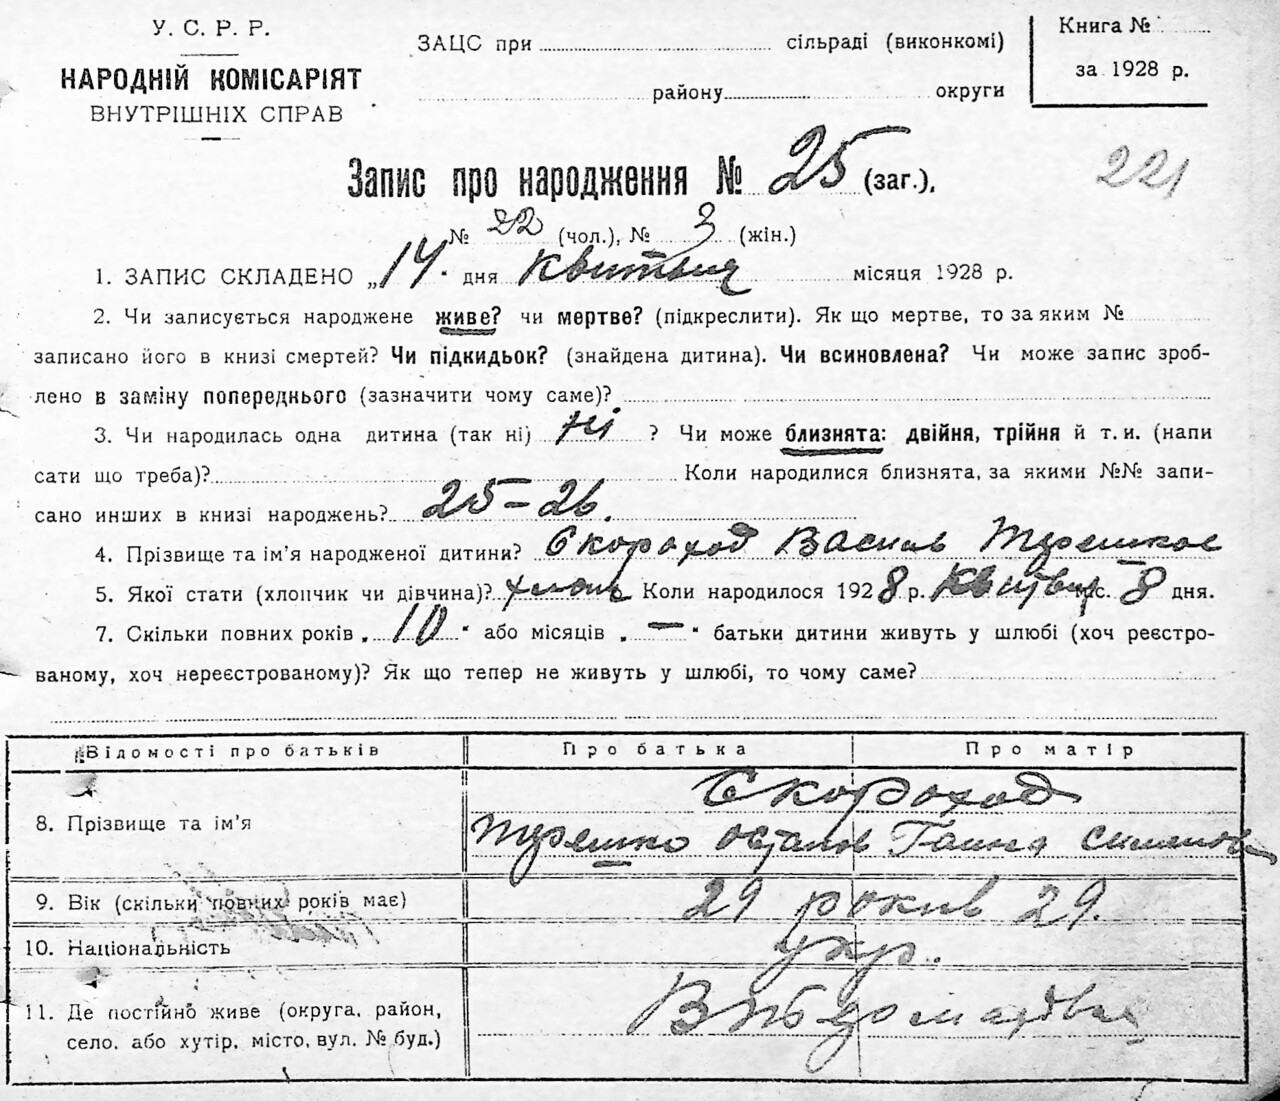 У. С. Р. Р.
НАРОДНІЙ КОМІСАРІЯТ
ВНУТРІШНІХ СПРАВ
ЗАЦС при сільраді (виконкомі)
району округи
Книга №
за 1928 р.
221
Запис про народження № 25 (заг.),
№ 22 (чол.), № 3 (жін.)
1. ЗАПИС СКЛАДЕНО „14" дня квитьня місяця 1928 р.
2. Чи записується народжене живе? чи мертве? (підкреслити). Як що мертве, то за яким №
записано його в книзі смертей? Чи підкидьок? (знайдена дитина). Чи всиновлена? Чи може запис зроб-
лено в заміну попереднього (зазначити чому саме)?
3. Чи народилась одна дитина (так ні) ні ? Чи може близнята: двійня, трійня й т. и. (напи
сати що треба)? Коли народилися близнята, за якими №№ запи-
сано инших в книзі народжень? 25-26.
4. Прізвище та ім'я народженої дитини? Скороход Василь Терешков
5. Якої стати (хлопчик чи дівчина)? хлопч Коли народилося 1928 р. Квітня с. 8 дня.
7. Скільки повних років „10" або місяців „—" батьки дитини живуть у шлюбі (хоч реєстро-
ваному, хоч нереєстрованому)? Як що тепер не живуть у шлюбі, то чому саме?
Відомості про батьків Про батька Про матір
Скороход
8. Прізвище та ім'я Терешко остапов Ганна
9. Вік (скільки повних років має) 29 рокив 29.
10. Національність укр.
11. Де постійно живе (округа, район,
село, або хутір, місто, вул. № буд.)